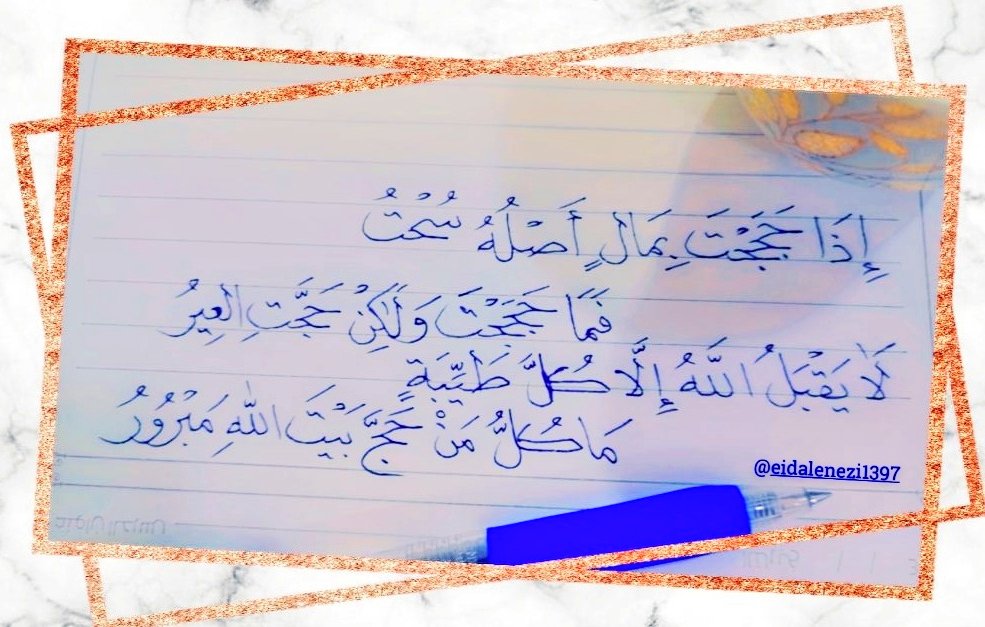 إِذَا حَجَجْتَ بِمَالٍ أَصْلُهُ سُحْتُ
فَمَا حَجَجْتَ وَلَٰكِنْ حَجَّتِ الْعِيرُ
لَا يَقْبَلُ اللَّهُ إِلَّا كُلَّ طَيِّبَةٍ
مَا كُلُّ مَنْ حَجَّ بَيْتَ اللَّهِ مَبْرُورُ
@eidalenezi1397